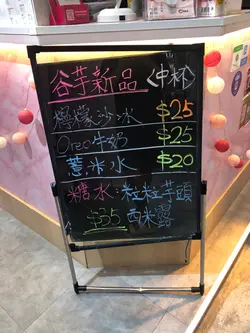 谷芋新品〈中杯〉
檸檬沙冰 $25
Oreo牛奶 $25
薏米水 $20
糖水：粒粒芋頭
$35 西米露